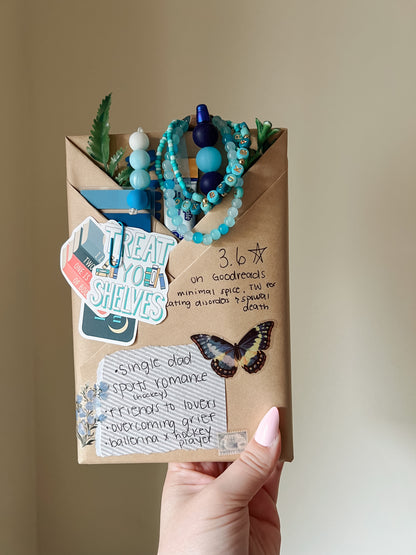 TREAT
YO
SHELVES
3.6 ☆
on Goodreads
minimal spice, TW for
eating disorders + spousal
death
• single dad
• sports romance
(hockey)
• friends to lovers
• overcoming grief
• ballerina x hockey
player